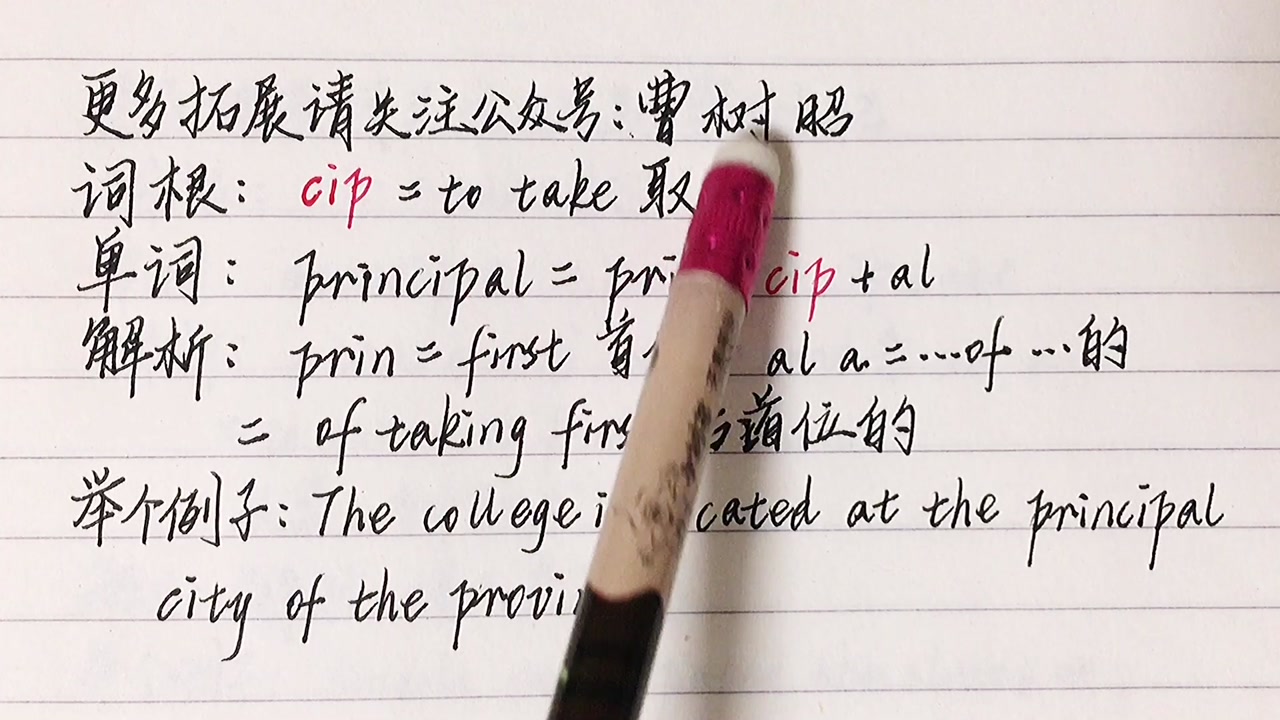 更多拓展请关注公众号:曹树昭
词根: cip = to take 取
单词: principal = pri cip + al
解析: prin = first 首 al a. = ...of ...的
= of taking firs 首位的
举个例子: The college i cated at the principal
city of the provi